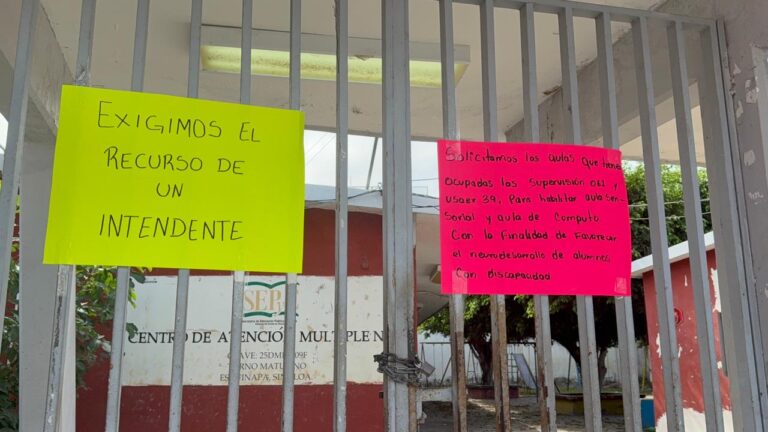 EXIGIMOS EL
RECURSO DE
UN
INTENDENTE
Solicitamos las aulas que tiene
Ocupadas las Supervisión 062 y
Usaer 39. Para habilitar aula Sen-
Sorial y aula de Computo.
Con la finalidad de Favorecer
el neurodesarrollo de alumnos
Con discapacidad
SEP
CENTRO DE ATENCIÓN MÚLTIPLE N
CLAVE: 25DM
09F
TURNO MATU
INO
ES
INAPA, SINALOA